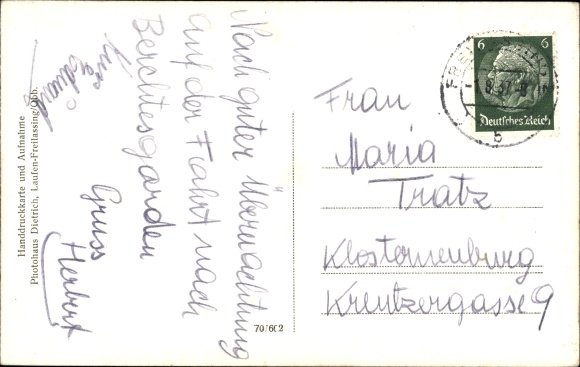 Nach guter Übernachtung
auf der Fahrt nach
Berchtesgarden
Gruss
Herbert
Eduard
Handdruckkarte und Aufnahme
Photohaus Dietrich, Laufen-Freilassing/Obb.
70/602
6 6
Deutsches Reich
8.37
5
Frau
Maria
Tratz
Klosterneuburg
Kreutzergasse 9